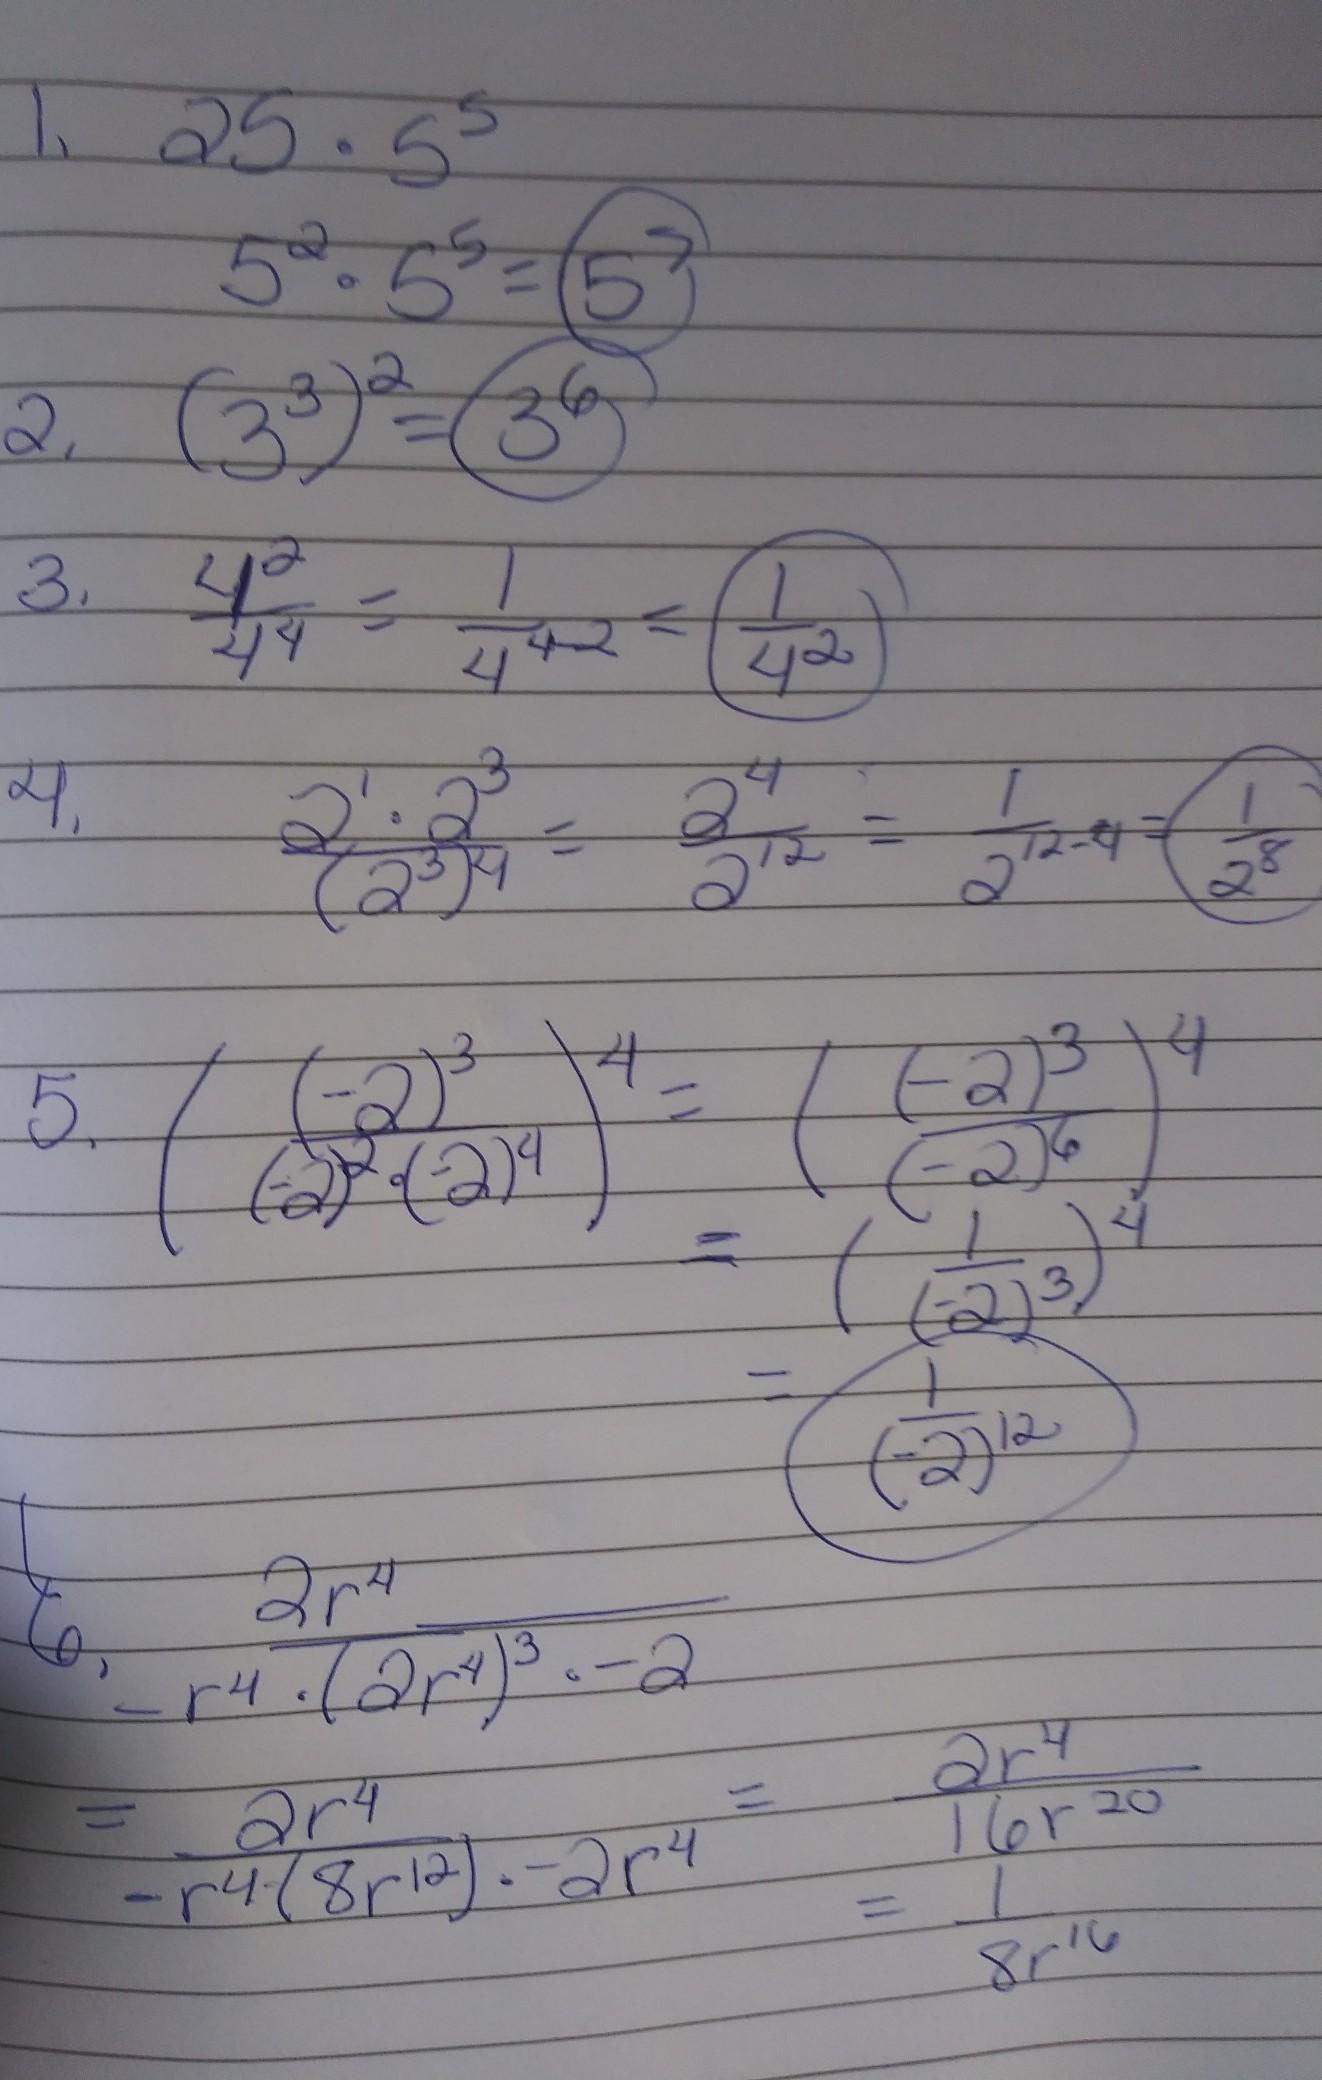 1. 25 · 5⁵
5² · 5⁵ = 5⁷
2. (3³)² = 3⁶
3. 4²/4⁴ = 1/4⁴⁻² = 1/4²
4. 2¹ · 2³/(2³)⁴ = 2⁴/2¹² = 1/2¹²⁻⁴ = 1/2⁸
5. ((-2)³/(-2)² · (-2)⁴)⁴ = ((-2)³/(-2)⁶)⁴
= (1/(-2)³)⁴
= 1/(-2)¹²
6. 2r⁴/-r⁴ · (2r⁴)³ · -2
= 2r⁴/-r⁴ · (8r¹²) · -2r⁴ = 2r⁴/16r²⁰
= 1/8r¹⁶